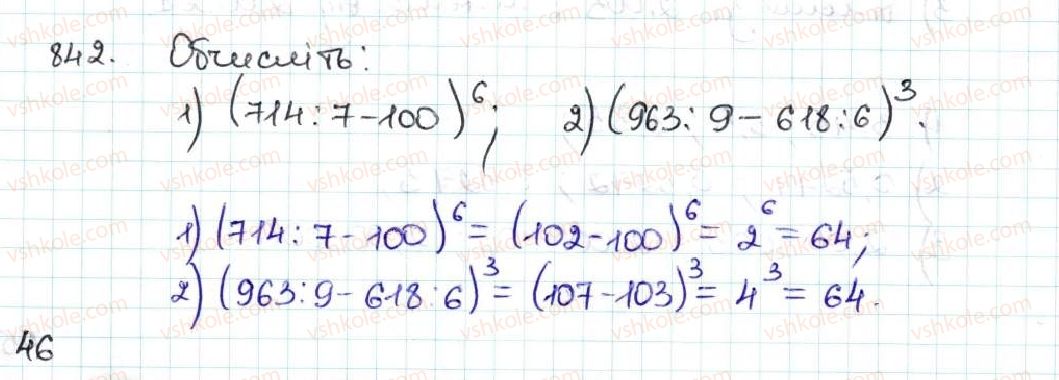 842. Обчисліть:
1) (714:7-100)⁶; 2) (963:9-618:6)³.
1) (714:7-100)⁶ = (102-100)⁶ = 2⁶ = 64;
2) (963:9-618:6)³ = (107-103)³ = 4³ = 64.
46